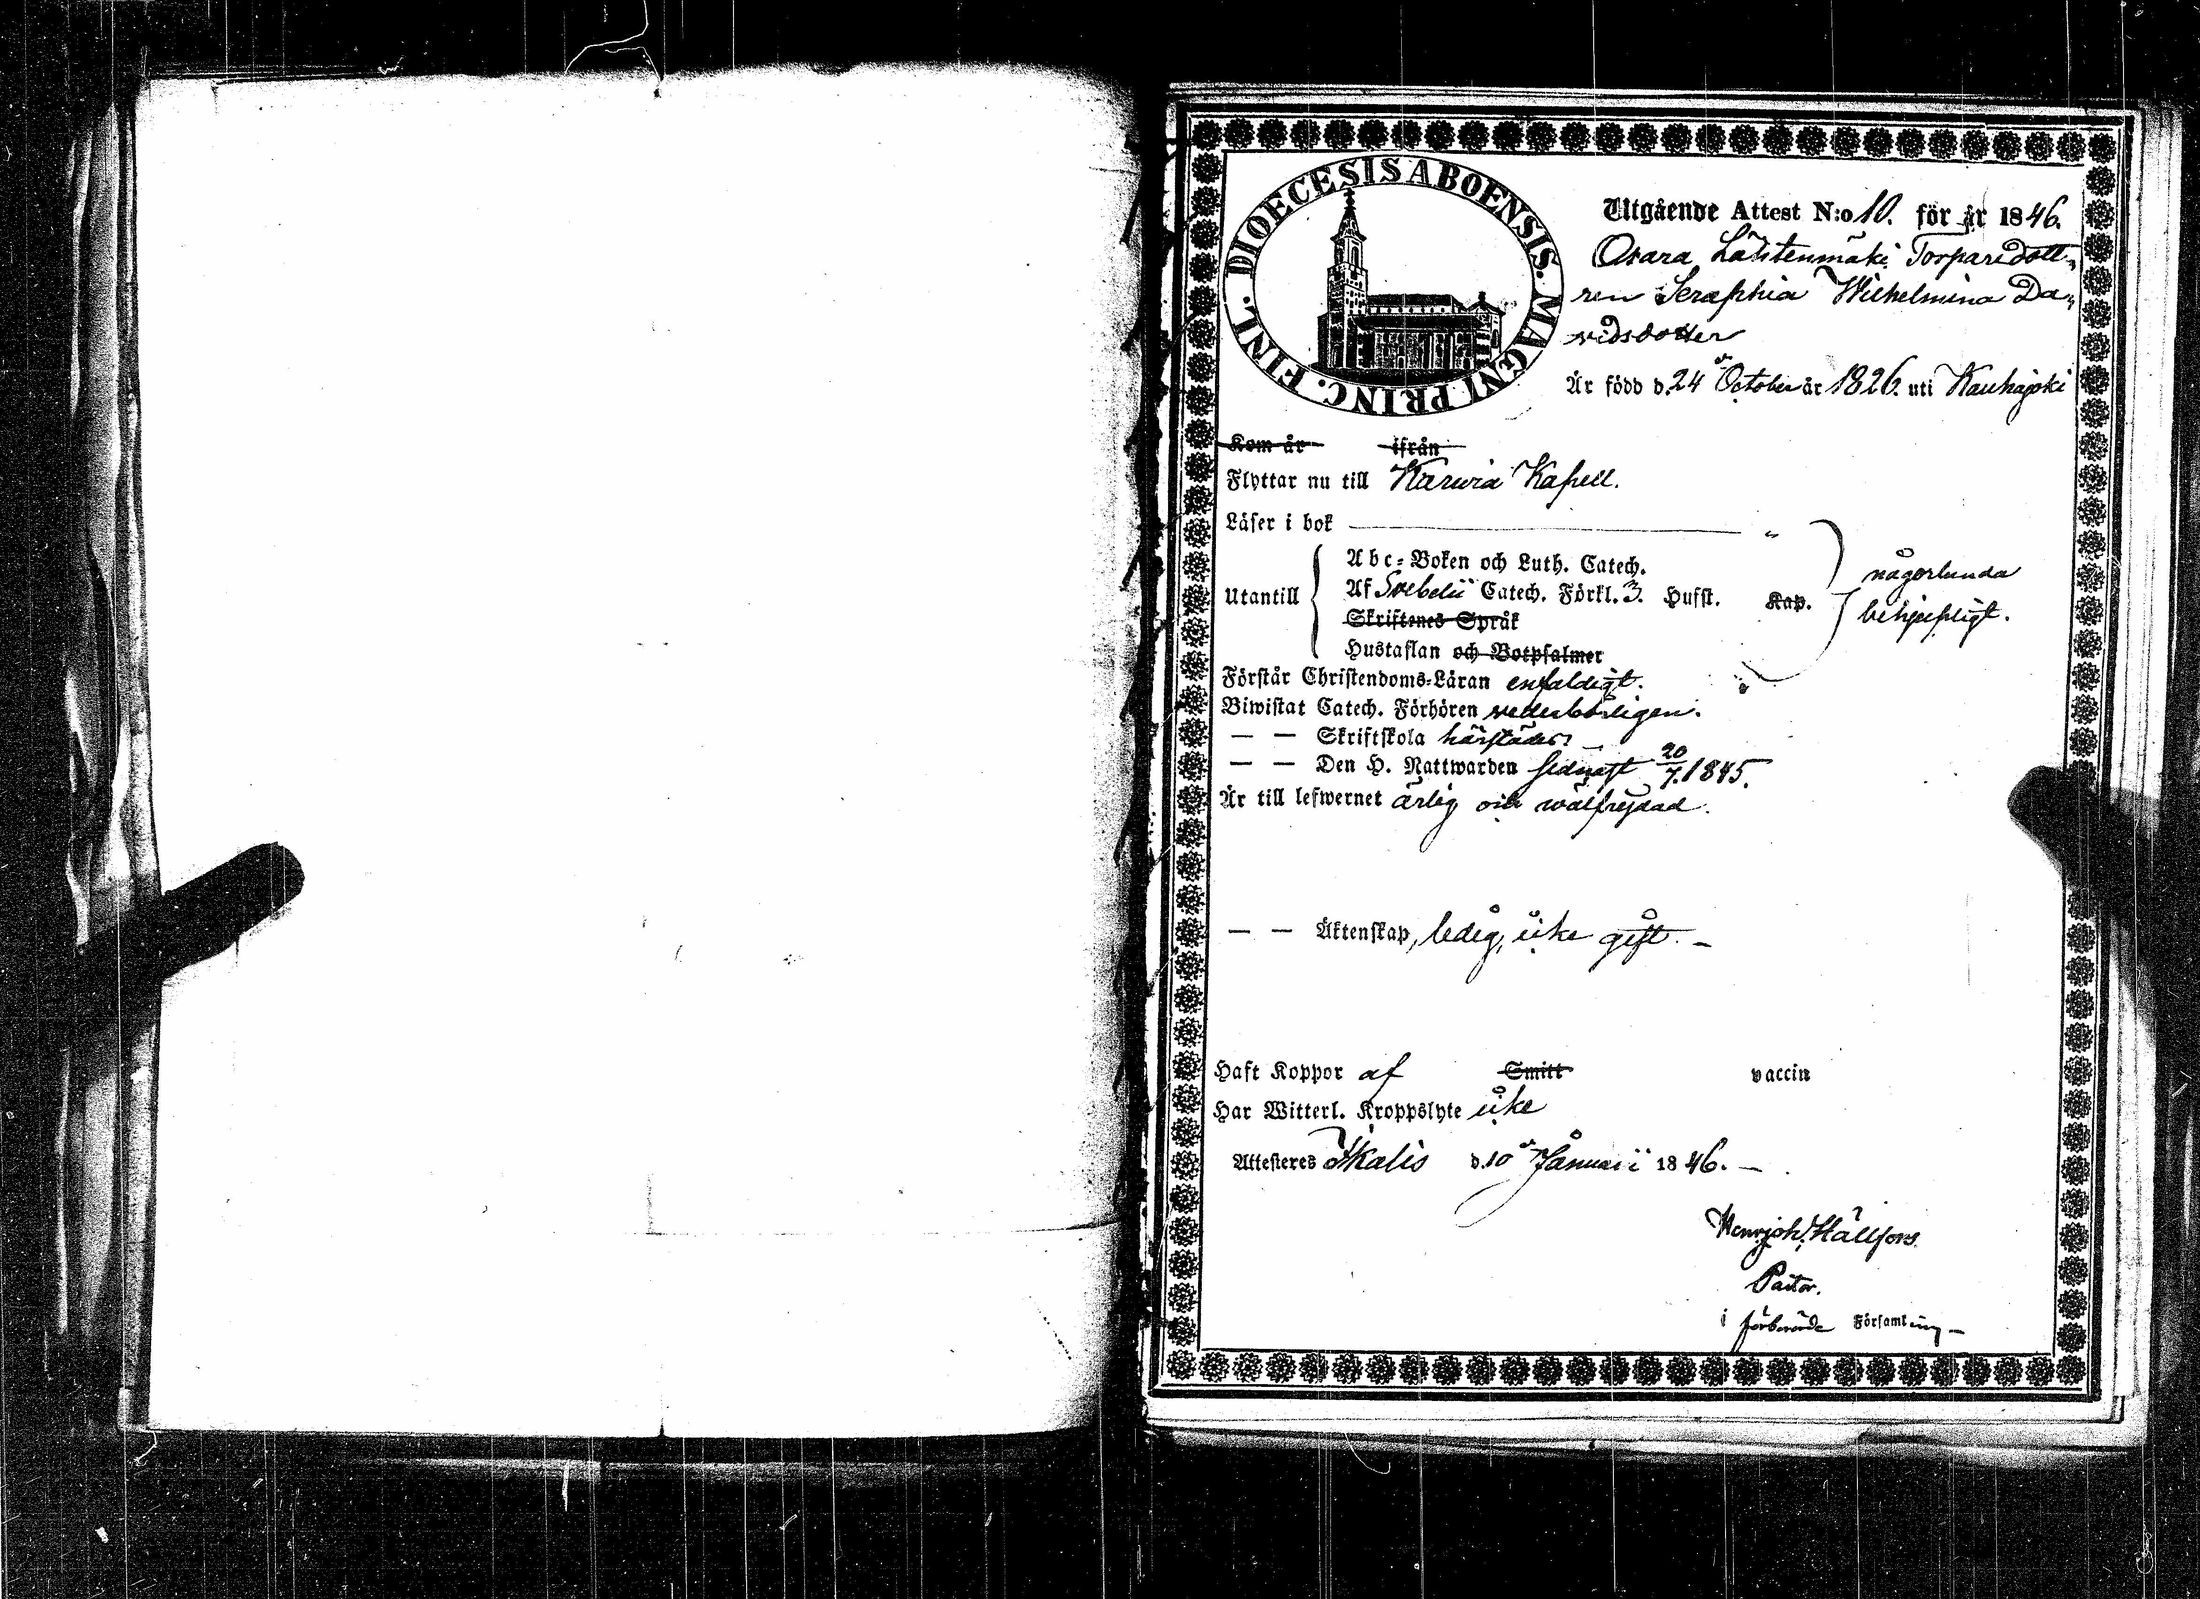 DIOECESIS ABOENSIS. MAGNI PRINC. FINL.
Utgående Attest N:o 10. för år 1846.
Osara Lähtenmäki Torparedott„
ren Seraphia Wilhelmina Da„
vidsdotter
Är född d. 24 October år 1826. uti Kauhajoki
Kom år ifrån
Flyttar nu till Karvia Kapell.
Läser i bok "
Utantill
Abc-Boken och Luth. Catech.
Af Svebelii Catech. Förkl. 3. Hufst. Kap.
Skriftenes Språk
Hustaflan och Botpsalmer
någorlunda
behjelpligt.
Förstår Christendoms-Läran enfaldigt.
Biwistat Catech. Förhören vederbörligen.
— — Skriftskola härstädes –
— — Den H. Nattwarden sednast 20/7. 1845.
Är till lefwernet ärlig och wälfrejdad.
— — Äktenskap, ledig, icke gift. –
Haft Koppor af Smitt vaccin
Har Witterl. Kroppslyte icke
Attesteres Ikalis d. 10 Januarii 1846. –
Henr. Joh. Hällfors
Pastor.
i förberörde Församling –